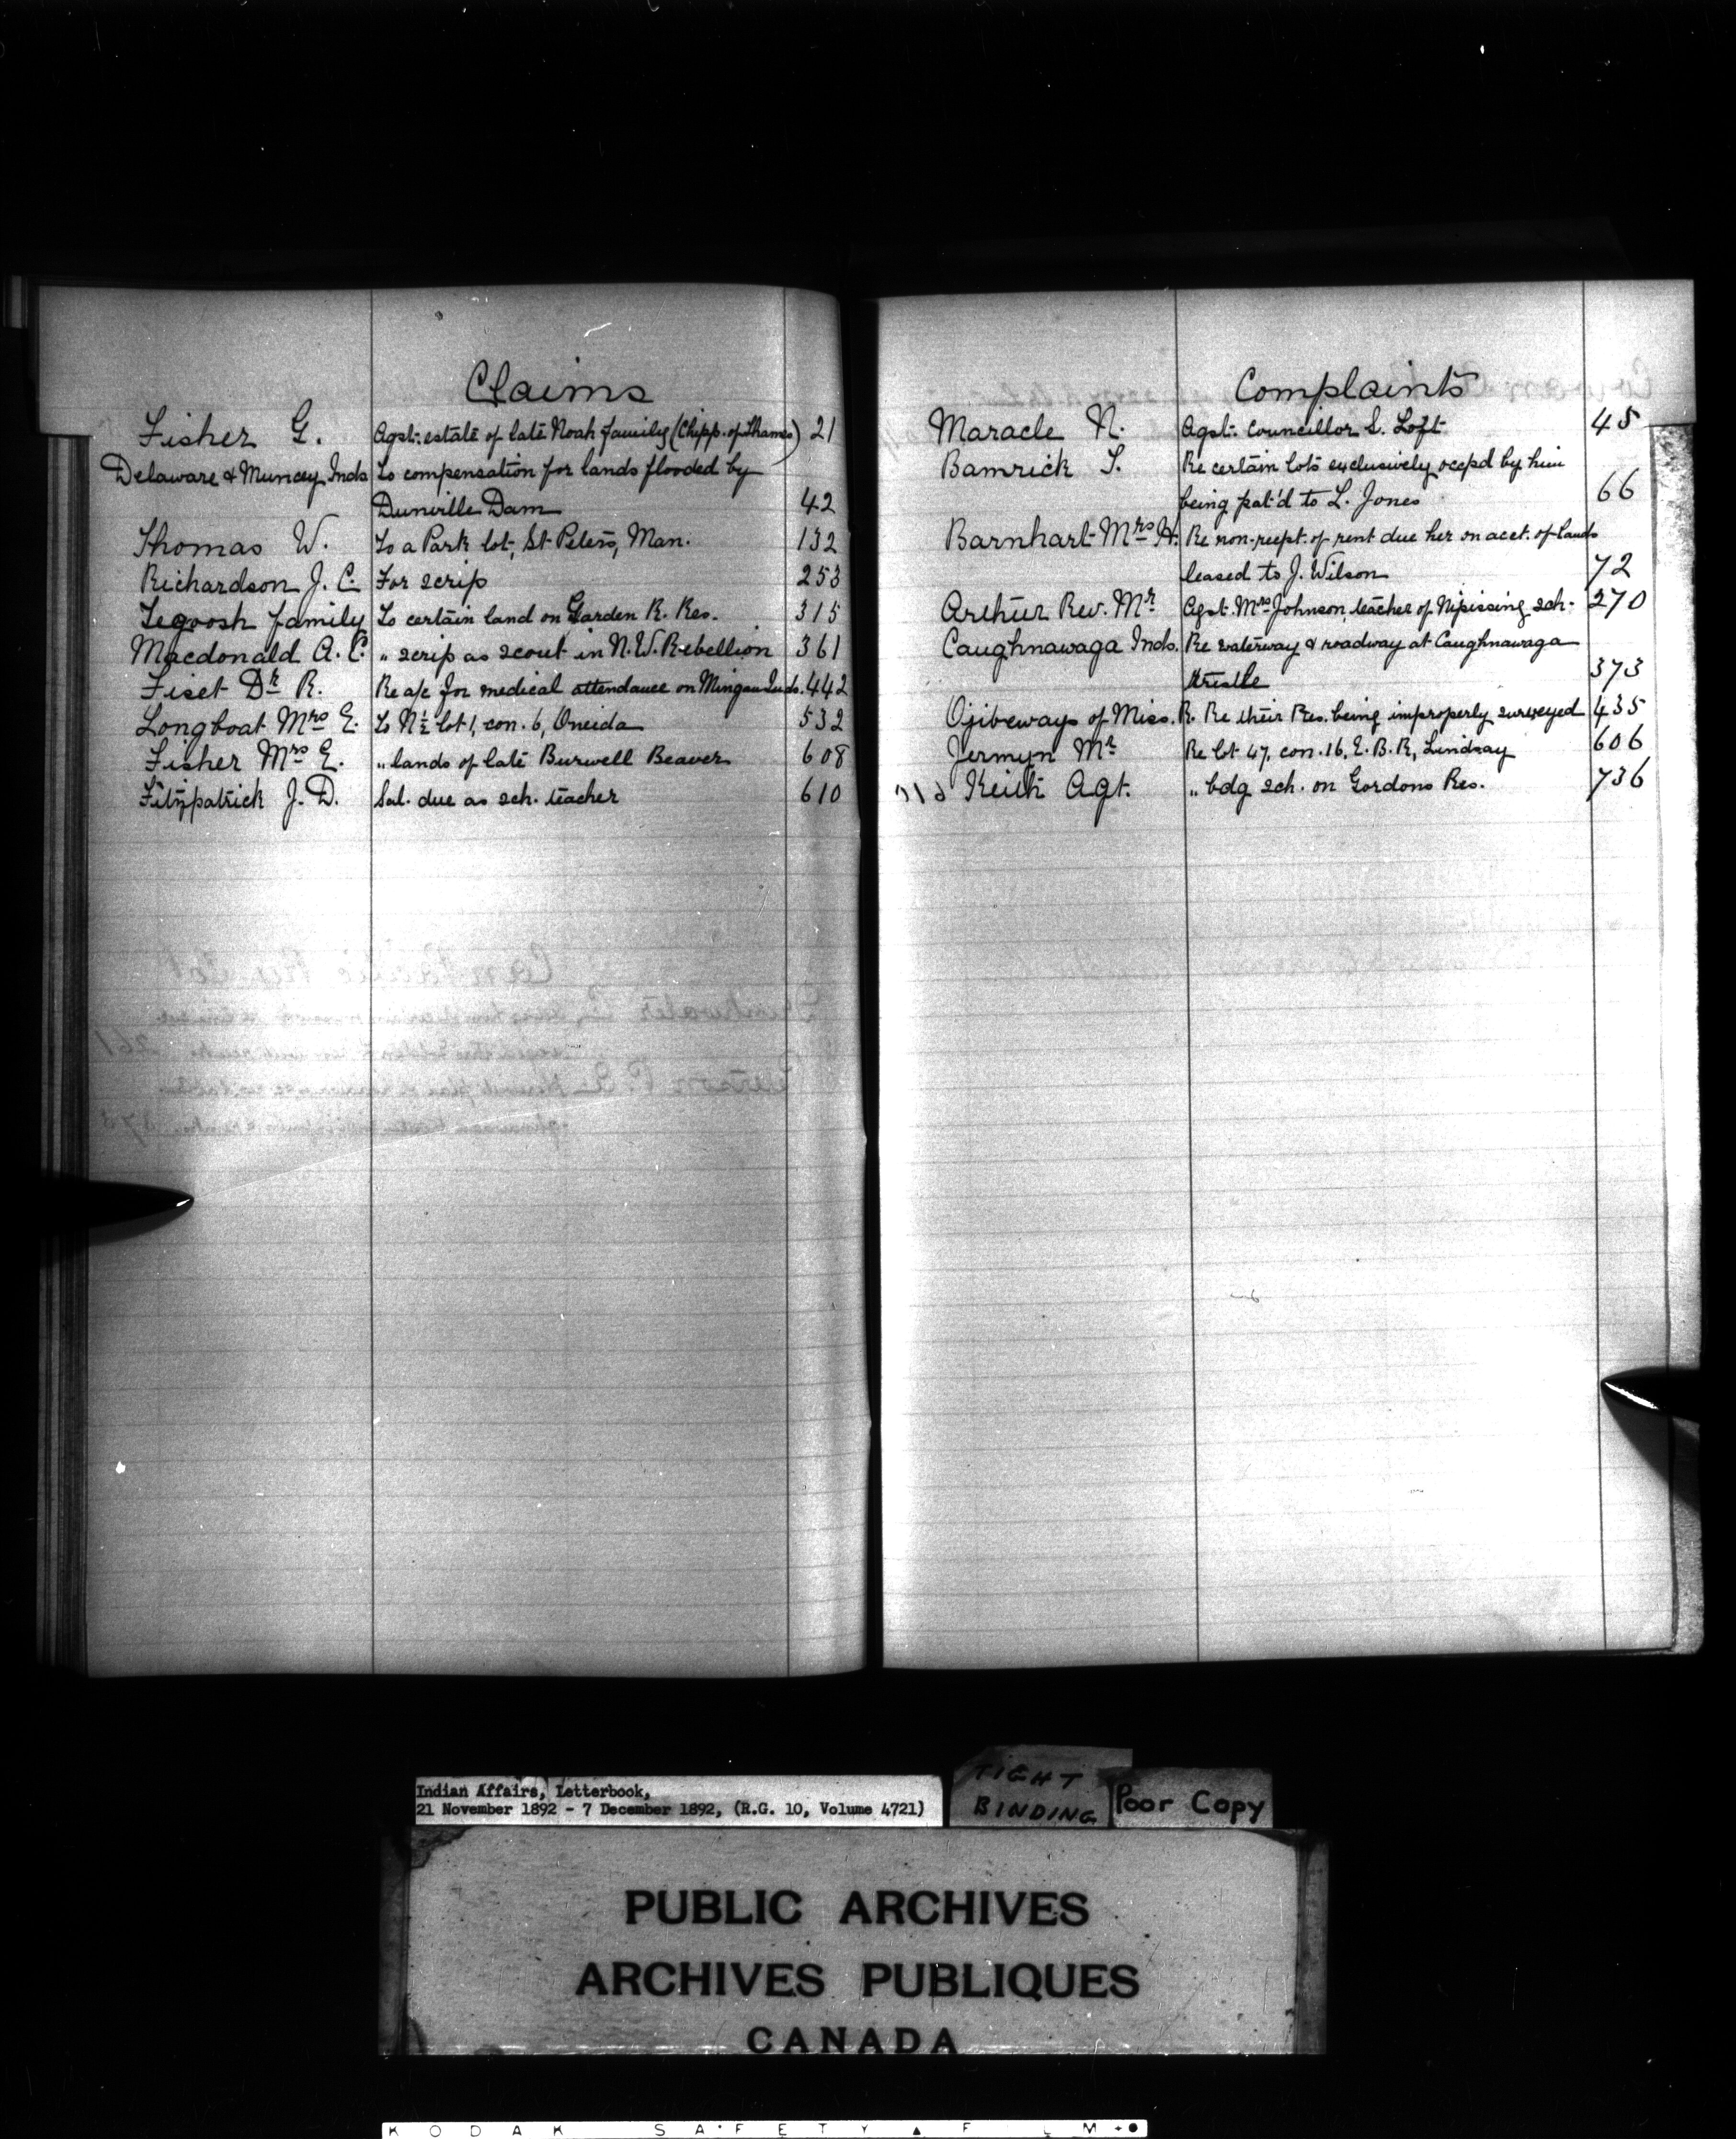 Claims
Fisher G. Agst. estate of late Noah family (Chipp. of Thames) 21
Delaware & Muncey Inds To compensation for lands flooded by
Dunville Dam 42
Thomas W. To a Park lot, St Peters, Man. 132
Richardson J. C. For scrip 253
Tegoosh family To certain land on Garden R. Res. 315
Macdonald A. C. " scrip as scout in N.W. Rebellion 361
Fiset Dr R. Re a/c for medical attendance on Mingan Inds. 442
Longboat Mrs E. To N½ lot 1, con. 6, Oneida 532
Fisher Mrs E. " lands of late Burwell Beaver 608
Fitzpatrick J. D. Sal. due as sch. teacher 610
Complaints
Maracle N. Agst. Councillor S. Loft 45
Bamrick S. Re certain lots exclusively occpd by him
being pat'd to L. Jones 66
Barnhart Mrs H. Re non-recpt. of rent due her on acct. of lands
leased to J. Wilson 72
Arthur Rev. Mr Agst. Mrs Johnson, teacher of Nipissing sch. 270
Caughnawaga Inds. Re waterway & roadway at Caughnawaga
373
Ojibeways of Miss. R. Re their Res. being improperly surveyed 435
Jermyn Mr Re lot 47, con. 16, E. B. R, Lindsay 606
Keith Agt. " bdg sch. on Gordons Res. 736
Indian Affairs, Letterbook,
21 November 1892 - 7 December 1892, (R.G. 10, Volume 4721)
TIGHT
BINDING
Poor Copy
PUBLIC ARCHIVES
ARCHIVES PUBLIQUES
CANADA
KODAK SAFETY F L M